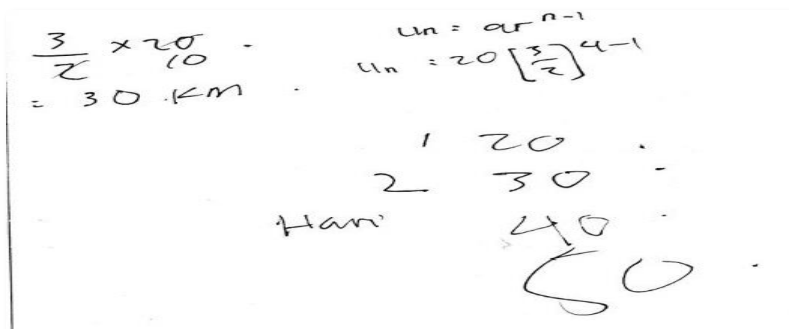 3/2 × 20 10
= 30 km
Un = ar^n-1
Un = 20 [3/2]^4-1
1 20
2 30
Hari 40
50